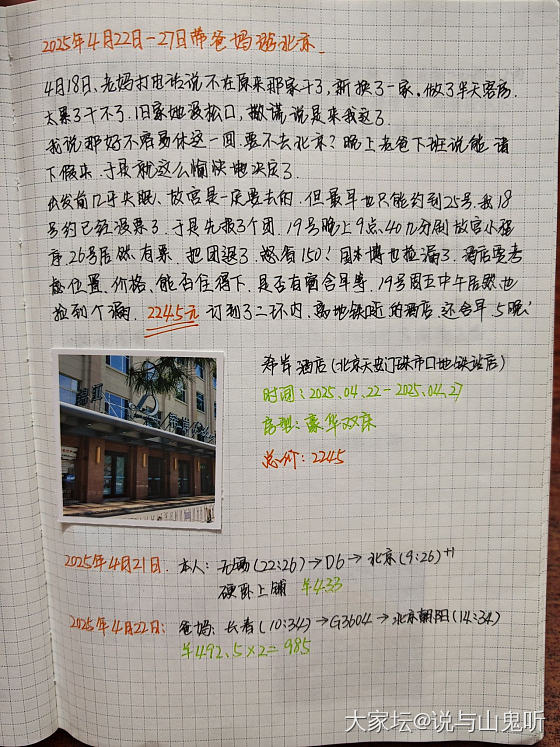 2025年4月22日-27日带爸妈游北京
4月18日,老妈打电话说不在原来那家干了,新换了一家,做了半天客房,
太累了干不了.旧家地没松口,撒谎说是来我这了.
我说那好不容易休这一回,要不去北京?晚上老爸下班说能请
下假来.于是就这么愉快地决定了.
出发前几乎失眠、故宫是一定要去的.但最早也只能约到25号.我18
号约已经没票了.于是先报了个团.19号晚上9点40几分刷故宫小程
序26号居然有票.把团退了.怒省150!国本博也捡漏了.酒店要考
虑位置、价格、能否住得下、是否有窗含早等.19号周五中午居然也
捡到个漏.2245元订到了二环内,离地铁哐近的酒店.还含早.5晚!
希岸酒店(北京天安门珠市口地铁站店)
时间:2025.04.22-2025.04.27
房型:豪华双床
总价:2245
锦江
2025年4月21日.本人:无锡(22:26)→D6→北京(9:26)+1
硬卧上铺 ¥433
2025年4月22日:爸妈:长春(10:34)→G3604→北京朝阳(14:34)
¥492.5×2=985
大家坛@说与山鬼听